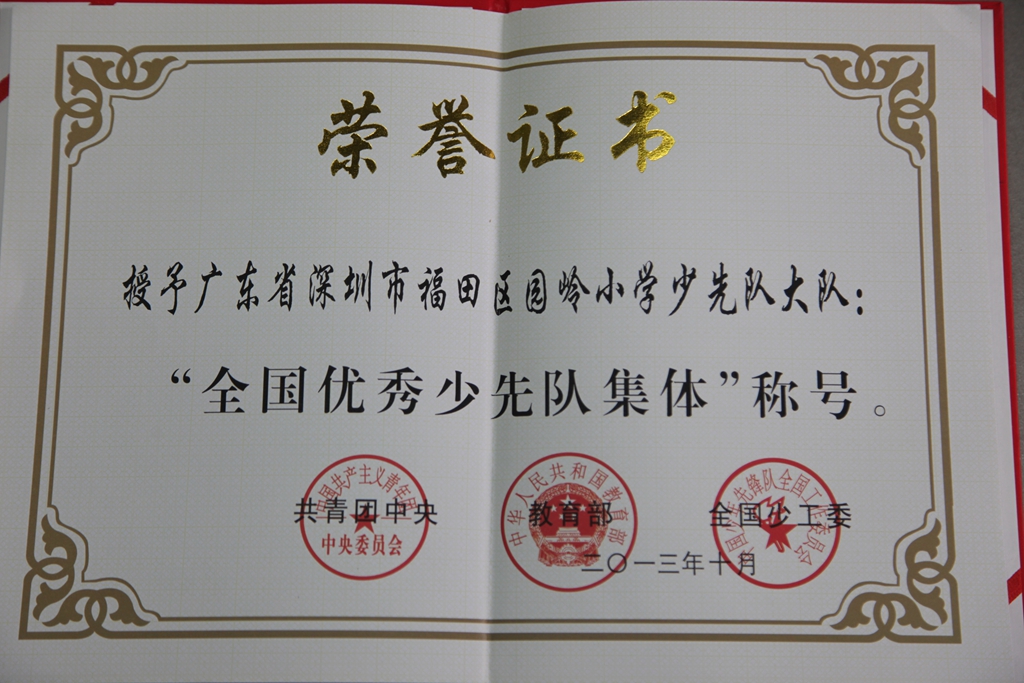 荣誉证书
授予广东省深圳市福田区园岭小学少先队大队：
“全国优秀少先队集体”称号。
中国共产主义青年团
中央委员会
共青团中央
中华人民共和国教育部
教育部
中国少年先锋队全国工作委员会
全国少工委
二〇一三年十月